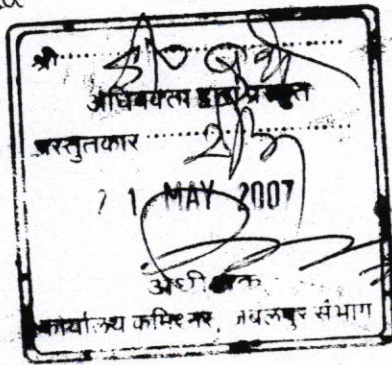 श्री
अधिवक्ता द्वारा प्रस्तुत
प्रस्तुतकार
21 MAY 2007
अधीक्षक
कार्यालय कमिश्नर, जबलपुर संभाग